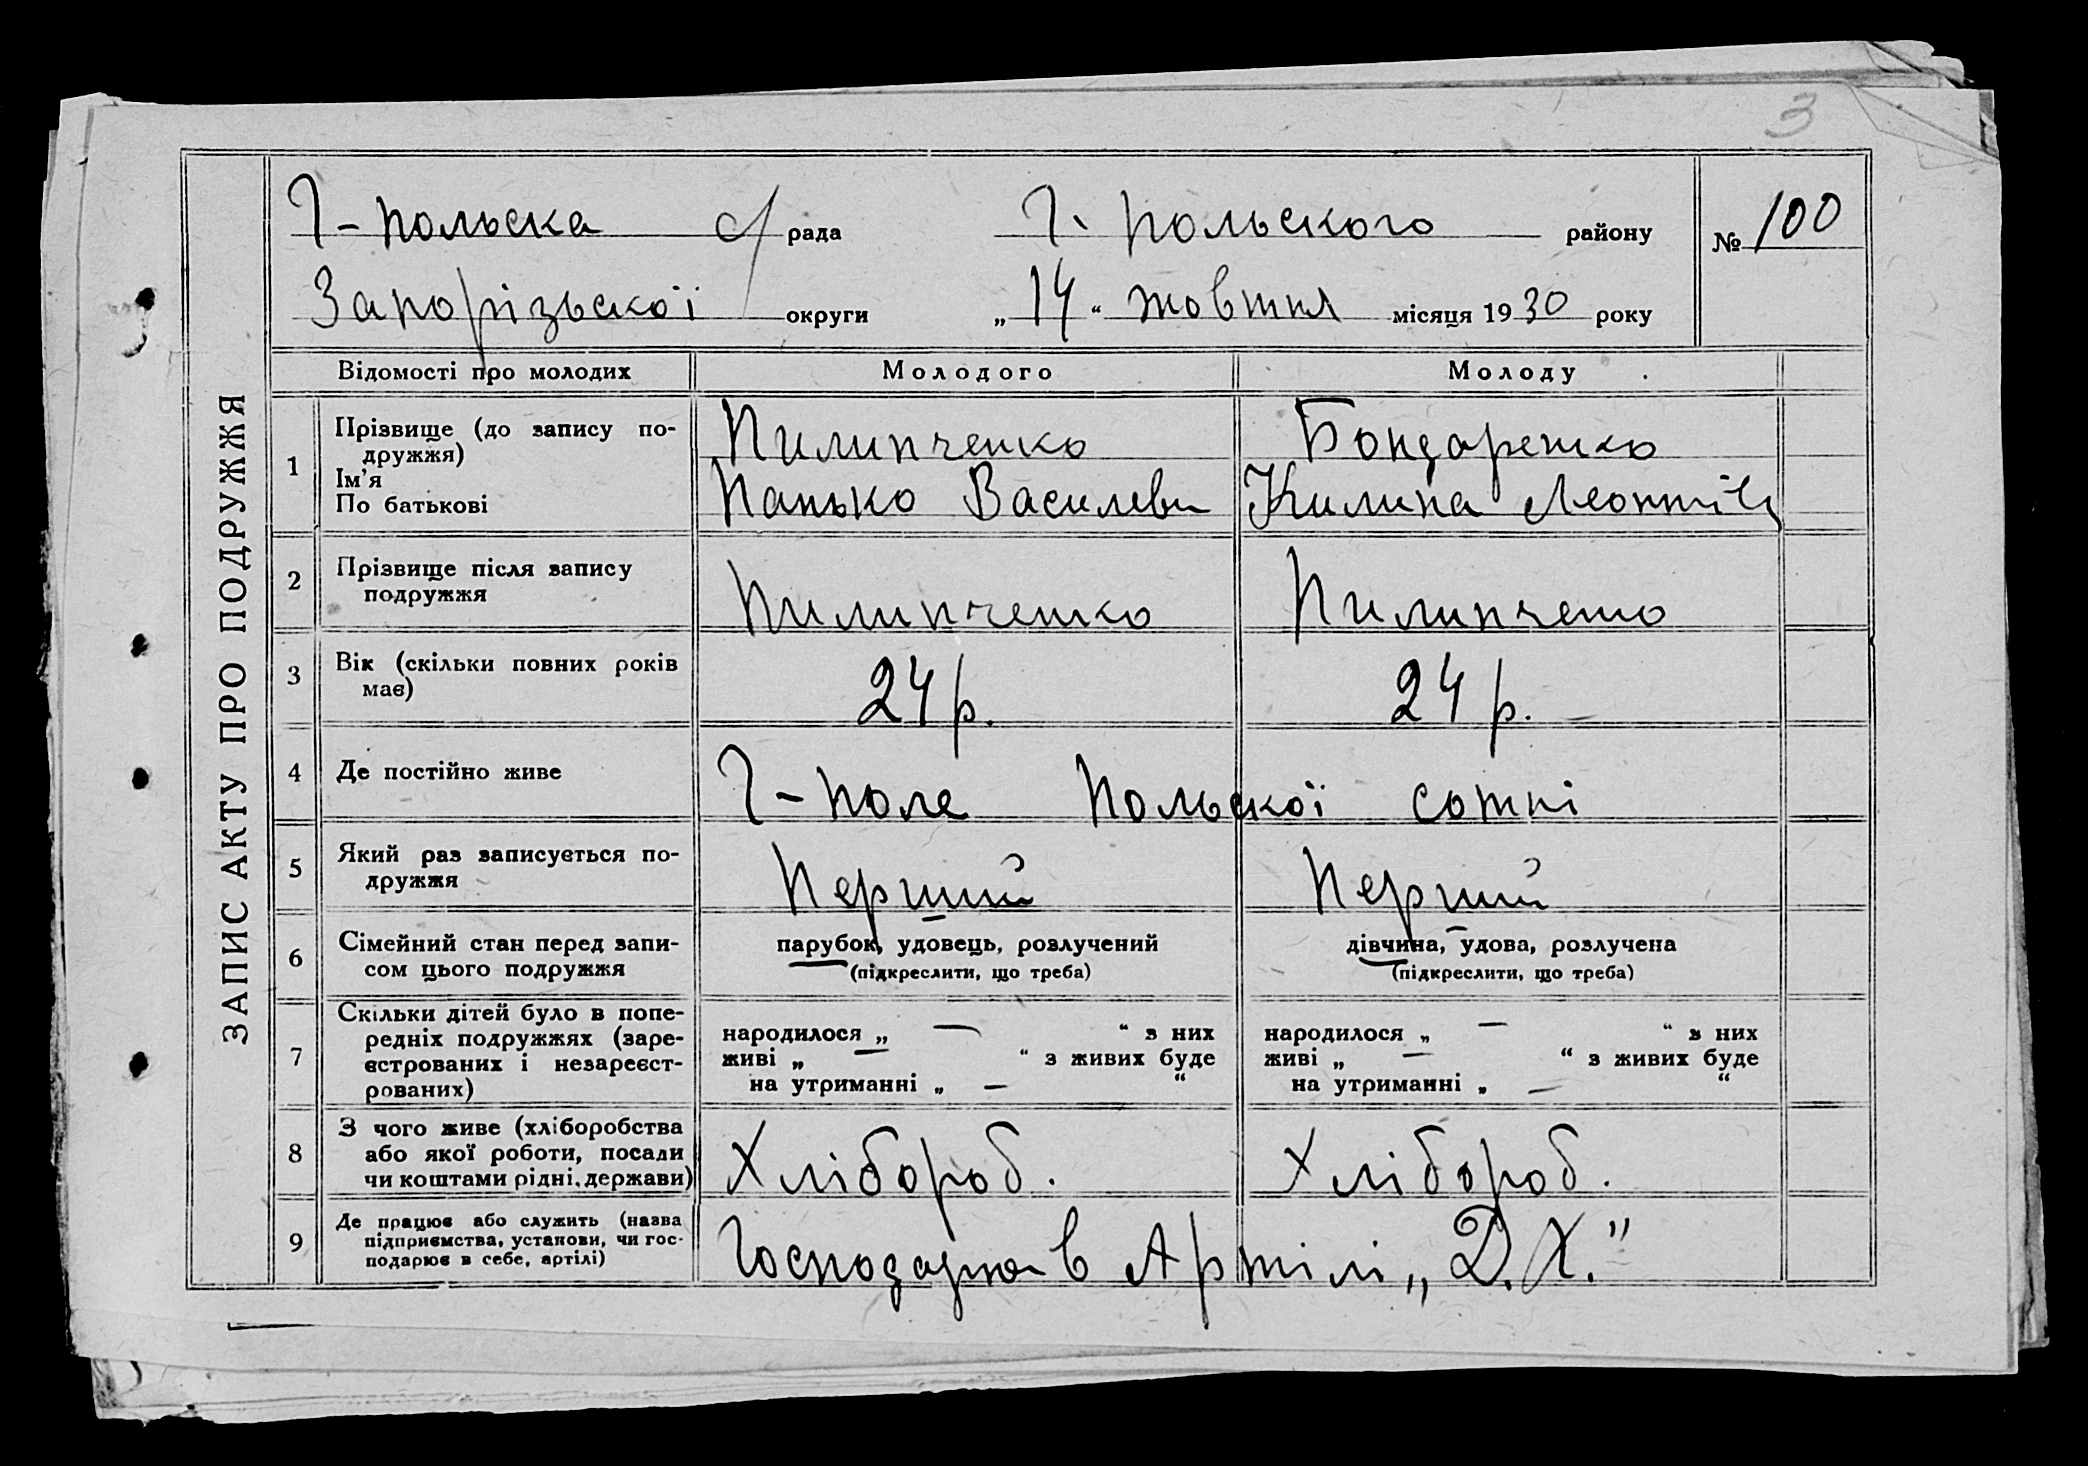 3
Г-польска с/рада Г. польского району № 100
Запорізьскої округи „14“ жовтня місяця 1930 року
ЗАПИС АКТУ ПРО ПОДРУЖЖЯ
Відомості про молодих Молодого Молоду
1 Прізвище (до запису по-
дружжя)
Ім'я
По батькові
Пилипченко Бондаренко
Панько Василеви Килина Леонтіів
2 Прізвище після запису
подружжя
Пилипченко Пилипченко
3 Вік (скільки повних років
має)
24 р. 24 р.
4 Де постійно живе Г-поле Польскої сотні
5 Який раз записується по-
дружжя
Перший Перший
6 Сімейний стан перед запи-
сом цього подружжя
парубок, удовець, розлучений дівчина, удова, розлучена
(підкреслити, що треба) (підкреслити, що треба)
7 Скільки дітей було в попе-
редніх подружжях (заре-
єстрованих і незареєст-
рованих)
народилося „ — “ з них народилося „ — “ з них
живі „ — “ з живих буде живі „ — “ з живих буде
на утриманні „ — “ на утриманні „ — “
8 З чого живе (хліборобства
або якої роботи, посади
чи коштами рідні, держави)
Хлібороб. Хлібороб.
9 Де працює або служить (назва
підприємства, установи, чи гос-
подарює в себе, артілі)
Господарює в Артілі „Д.Х.”